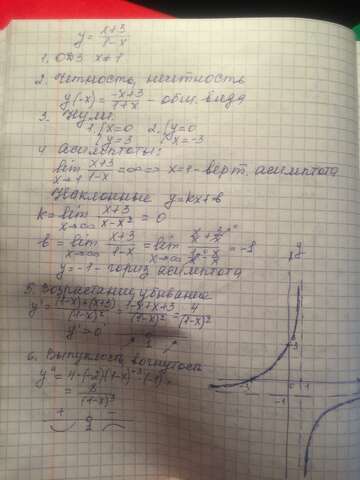 y = (x+3)/(1-x)
1. ОДЗ x≠1
2. Четность, нечётность
y(-x) = (-x+3)/(1+x) - общ. вида
3. Нули.
1. {x=0 2. {y=0
{y=3 {x=-3
4. асимптоты:
lim x→1 (x+3)/(1-x) = ∞ => x=1 - верт. асимптота
Наклонные y=kx+b
k = lim x→∞ (x+3)/(x-x²) = 0
b = lim x→∞ (x+3)/(1-x) = lim x→∞ (x/x + 3/x)/(1/x - x/x) = -1
y=-1 - гориз асимптота
5. Возрастание, убывание
y' = ((1-x)+(x+3))/(1-x)² = (1-x+x+3)/(1-x)² = 4/(1-x)²
y' > 0
6. Выпуклость вогнутость
y'' = 4·(-2)(1-x)⁻³·(-1) =
= 8/(1-x)³
+ -
y
3
-3 1
-1